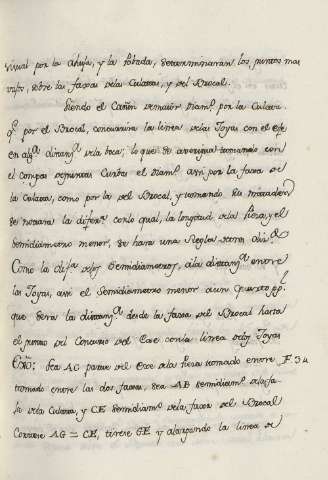 por la Abuja, y la Pobada, determinaran los puntos mas
sobre las fajas dela Culata, y del Brocal.
Siendo el Cañon demaior Diam.º por la Culata
q.e por el Brocal, concurrira la linea delas Joyas con el exe
en alg.ª distanz.ª dela boca; lo que se averigua tomando con
el compas depuntas Curbas el Diam.º assi por la faxa de
la Culata, como por la del Brocal, y tomando su mitad
se notara la difer.ª con lo qual, la longitud dela Pieza, y el
Semidiametro menor, se hara una Regla de tres
Como la dif.ª delos Semidiametros, ala distanz.ª entre
las Joyas, assi el Semidiametro menor a un quarto pp.l
que sera la distanz.ª desde la faxa del Brocal hasta
el punto del Concurso del Exe con la linea delas Joyas
Sea AG parte del Exe dela Pieza tomado entre F. 34
tomado entre las dos faxas, sea AB semidiam.º dela fa-
xa dela Culata, y CE semidiam.º dela faxa del Brocal
Cortese AG = CE, tirese GE y alargando la linea de